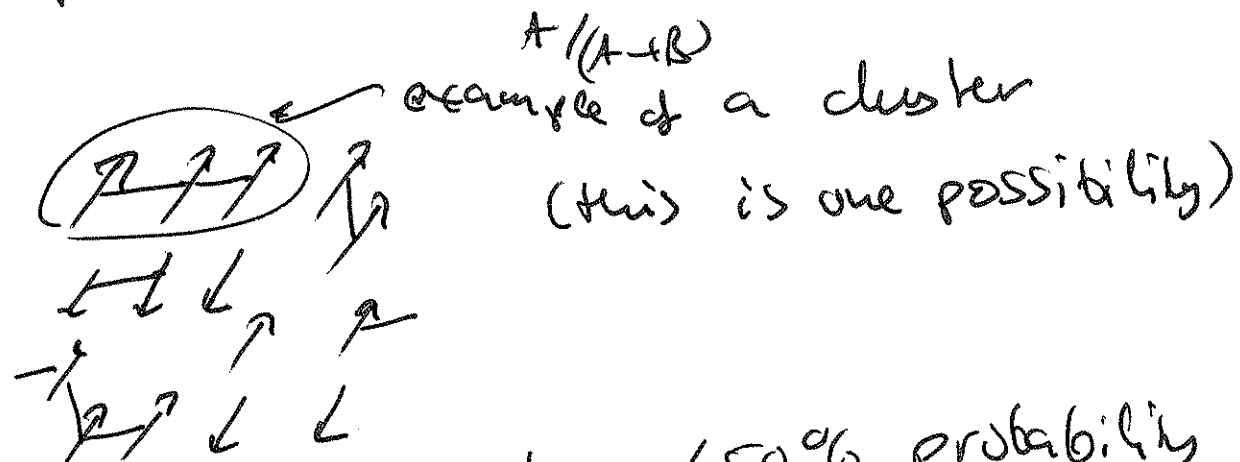 A/(A+B)
example of a cluster
(this is one possibility)
(50% probability